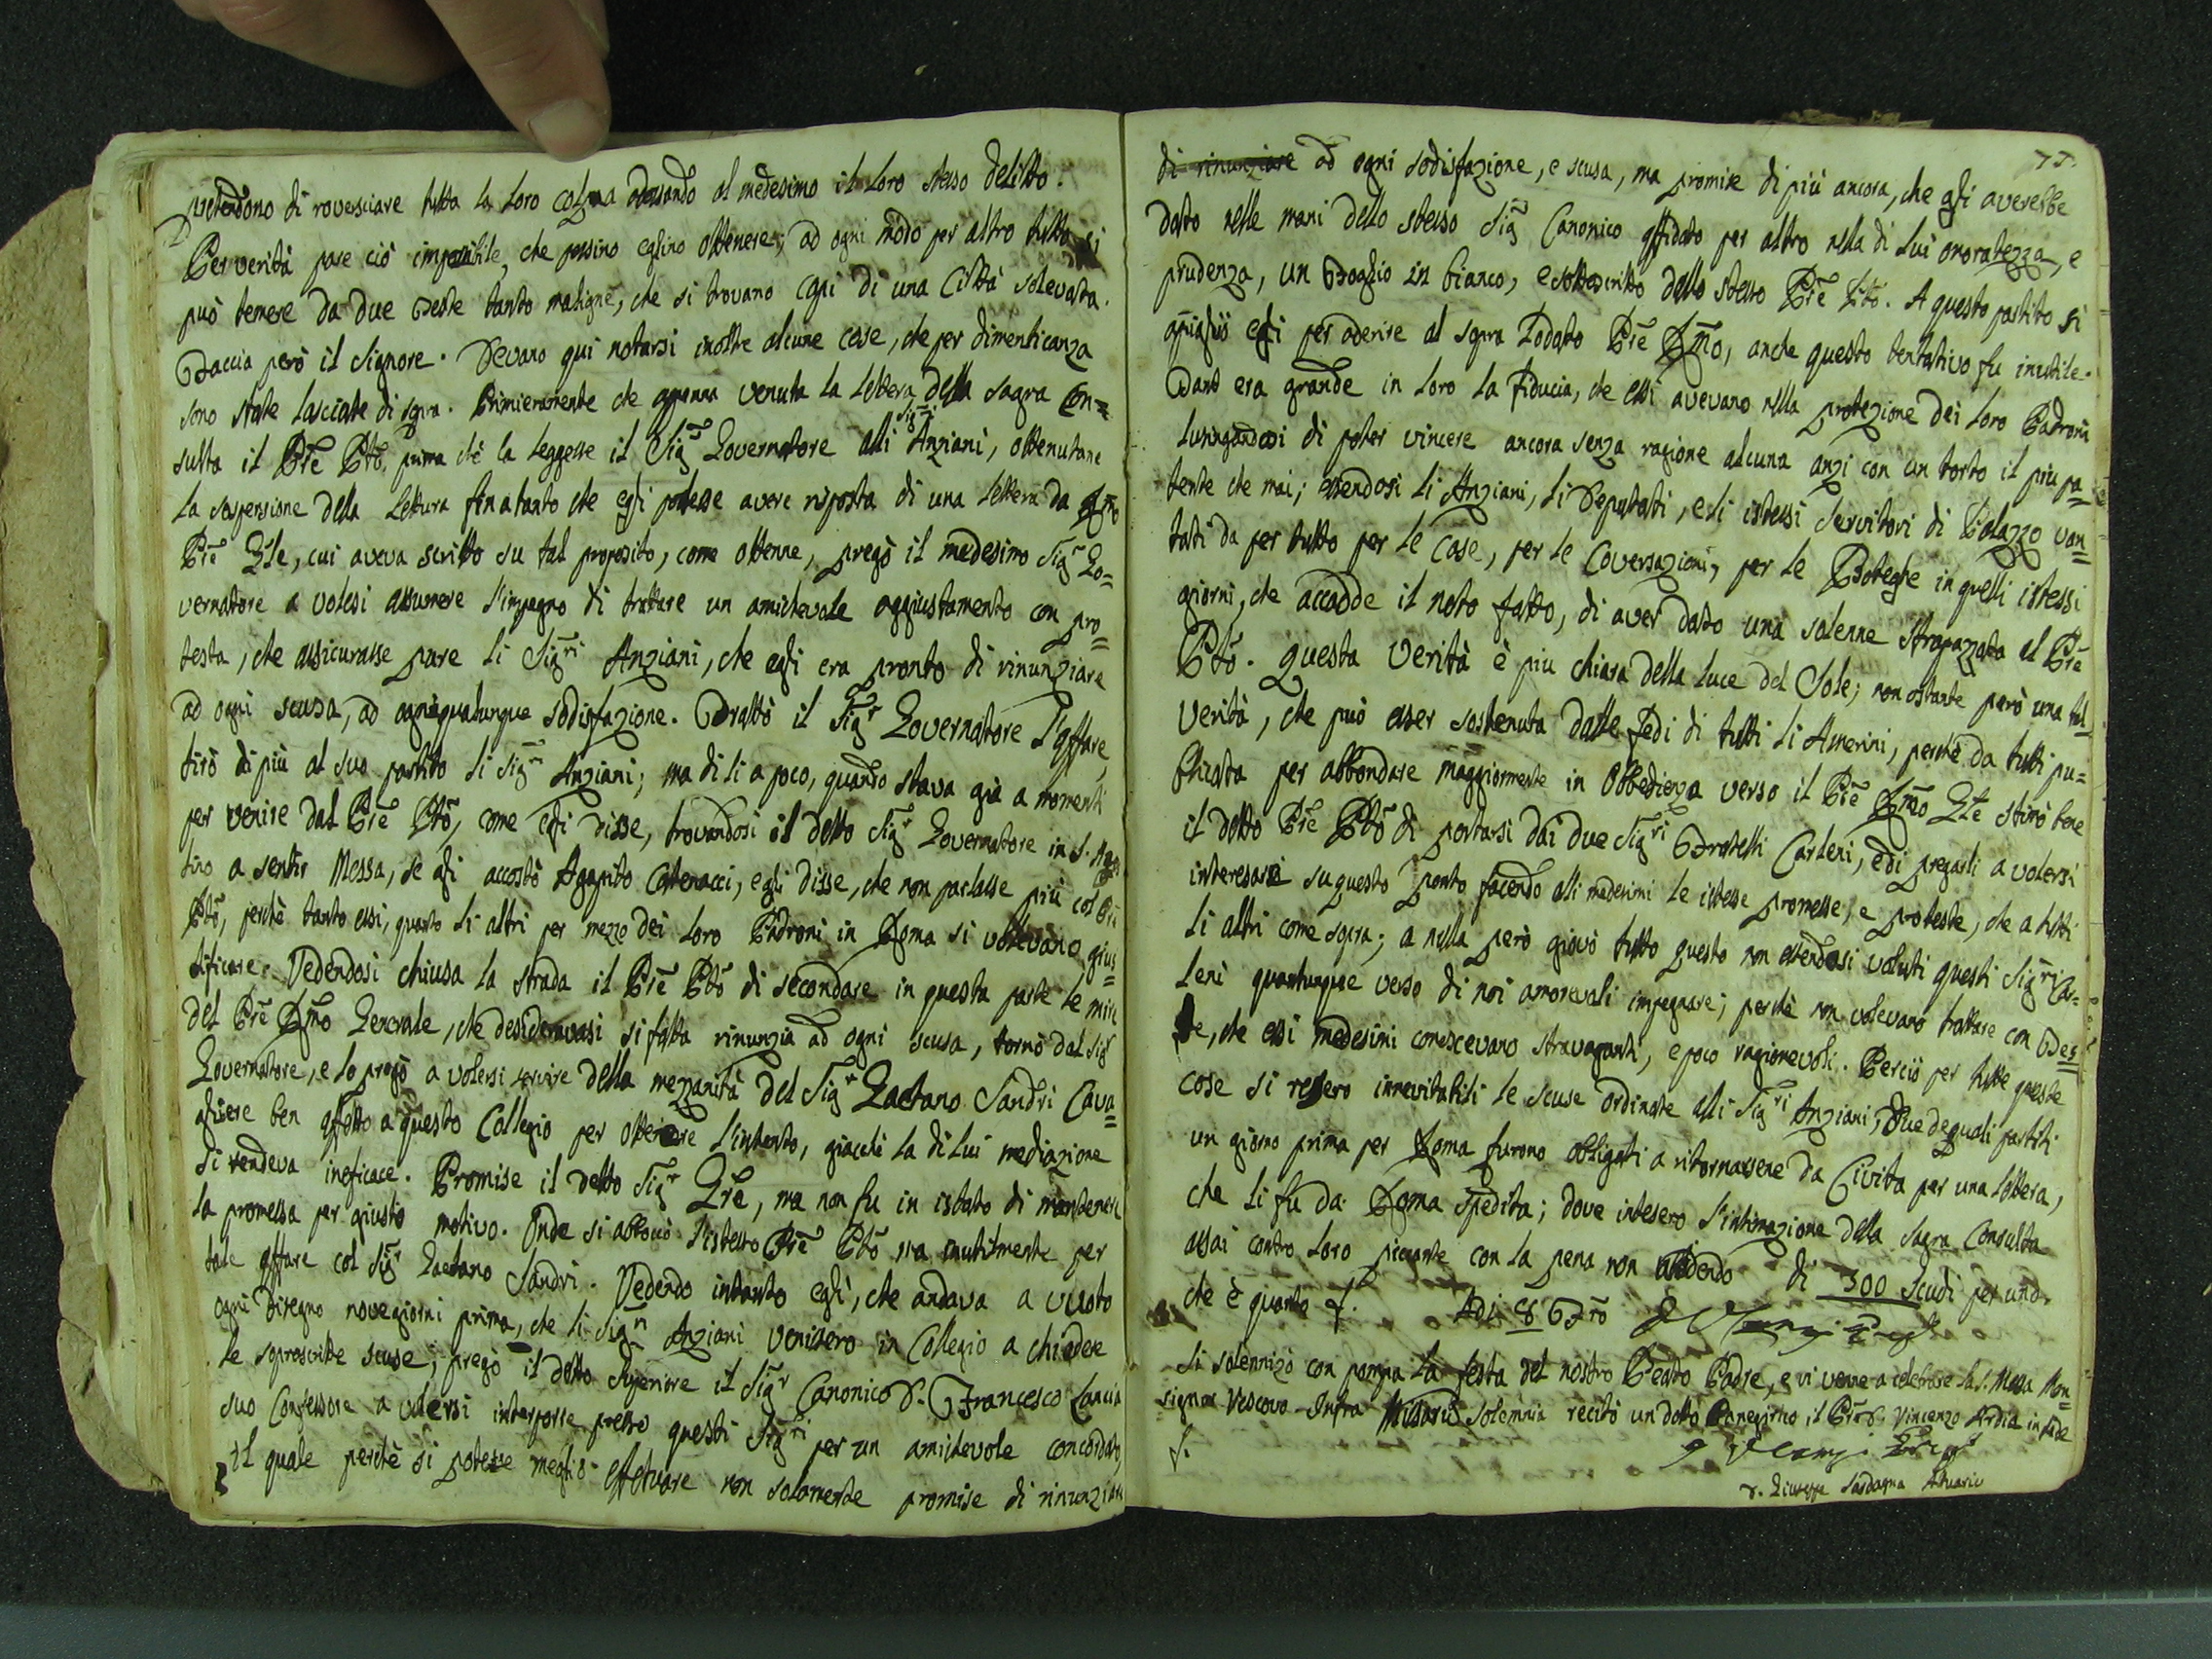 pretendono di rovesciare tutta la loro colpa adossando al medesimo il loro stesso delitto.
Per verità pare ciò impossibile, che possino eglino ottenere; ad ogni modo per altro tutto si
può temere da due Teste tanto maligne, che si trovano capi di una Città solevata.
Faccia però il Signore. Devano qui notarsi inoltre alcune cose, che per dimenticanza
sono state lasciate di sopra. Primieramente che appena venuta la lettera della Sagra Con=
sulta il Prẽ Pttõ, prima chè la leggesse il Sigr̃ Governatore alli Sigri Anziani, ottenutane
la sospensione della lettura finatanto che egli potesse avere risposta di una lettera da Rm̃o
Prẽ Gle, cui aveva scritto su tal proposito, come ottenne, pregò il medesimo Sigr Go=
vernatore a volesi assumere l'impegno di trattare un amichevole aggiustamento con pro=
testa, che assicurasse pure li Sigri Anziani, che egli era pronto di rinunziare
ad ogni scusa, ad ogniqualunque sodisfazione. Trattò il Sigr Governatore l'affare,
tirò di più al suo partito li Sigri Anziani; ma di li a poco, quando stava già a momenti
per venire dal Prẽ Pttõ, come egli disse, trovandosi il detto Sigr Governatore in S. Agos
tino a sentir Messa, se gli accostò Agapito Catenacci, e gli disse, che non parlasse più col Prẽ
Pttõ, perchè tanto essi, quanto li altri per mezzo dei loro Padroni in Roma si volevano gius=
tificare. Vedendosi chiusa la strada il Prẽ Pttõ di secondare in questa parte le mire
del Prẽ Rm̃o Generale, che desideravasi si fatta rinunzia ad ogni scusa, tornò dal Sigr
Governatore, e lo pregò a volersi servire della mezzanità del Sigr Gaetano Sandri Cava=
gliere ben affetto a questo Collegio per ottenere l'intento, giacchè la di lui mediazione
si rendeva ineficace. Promise il detto Sigr Grẽ, ma non fu in istato di mantenere
la promessa per giusto motivo. Onde si abbocò l'istesso Prẽ Pttõ ma inutilmente per
tale affare col Sigr Gaetano Sandri. Vedendo intanto egli, che andava a vuoto
ogni disegno nove giorni prima, che li Sigri Anziani venissero in Collegio a chiedere
le soprascritte scuse; pregò il detto Superiore il Sigr Canonico D. Francesco Lancia
suo Confessore a volersi interporre presso questi Sigri per un amichevole concordato,
il quale perchè si potesse meglio effetuare non solamente promise di rinunziare
77.
di rinunziare ad ogni sodisfazione, e scusa, ma promise di più ancora, che gli averebbe
dato nelle mani dello stesso Sig̃ Canonico affidato per altro nella di lui onoratezza, e
prudenza, un Foglio in bianco, e sottoscritto dello stesso Prẽ Pttõ. A questo partito si
apigliò egli per aderire al sopra Lodato Prẽ Rm̃o, anche questo tentativo fu inutile.
Tant era grande in loro la fiducia, che essi avevano nella protezione dei loro Padroni
lusingandosi di poter vincere ancora senza ragione alcuna anzi con un torto il più pa=
tente che mai; essendosi li Anziani, li Deputati, e li istessi servitori di Palazzo van=
tati da per tutto per le Case, per le Coversazioni, per le Boteghe in quelli istessi
giorni, che accadde il noto fatto, di aver dato una solenne strapazzata al Prẽ
Pttõ. Questa Verità è piu chiara della luce del Sole; non ostante però una tal
Verità, che può esser sostenuta dalle fedi di tutti li Amerini, perchè da tutti pu=
blicata per abbondare maggiormente in Obbedienza verso il Prẽ Rm̃o Gle stimò bene
il detto Prẽ Pttõ di portarsi dai due Sigri Fratelli Carleni, e di pregarli a volersi
interesarsi su questo ponto facendo alli medesimi le istesse promesse, e proteste, che a tutti
li altri come sopra; a nulla però giovò tutto questo non essendosi voluti questi Sigri Car=
leni quantunque verso di noi amorevoli impegnare; perchè non volevano trattare con Tes=
te, che essi medesimi conoscevano stravaganti, e poco ragionevoli. Perciò per tutte queste
cose si resero innevitabili le scuse ordinate alli Sigri Anziani, Due de quali partiti
un giorno prima per Roma furono obligati a ritornassene da Civita per una lettera,
che li fu da Roma spedita; dove intesero l'intimazione della Sagra Consulta
assai contro loro piccante con la pena non ubidendo di 300 Scudi per uno.
che è quanto &.
Adi 8 Frõ
Si solennizò con pompa la festa del nostro Beato Padre, e vi venne a celebrare la S. Messa Mon=
signor Vescovo. Infra Missarum Solemnia recitò un dotto Panegirico il Prẽ D. Vincenzo Ardia in lode
&.
D. Giuseppe Sardagna Attuario